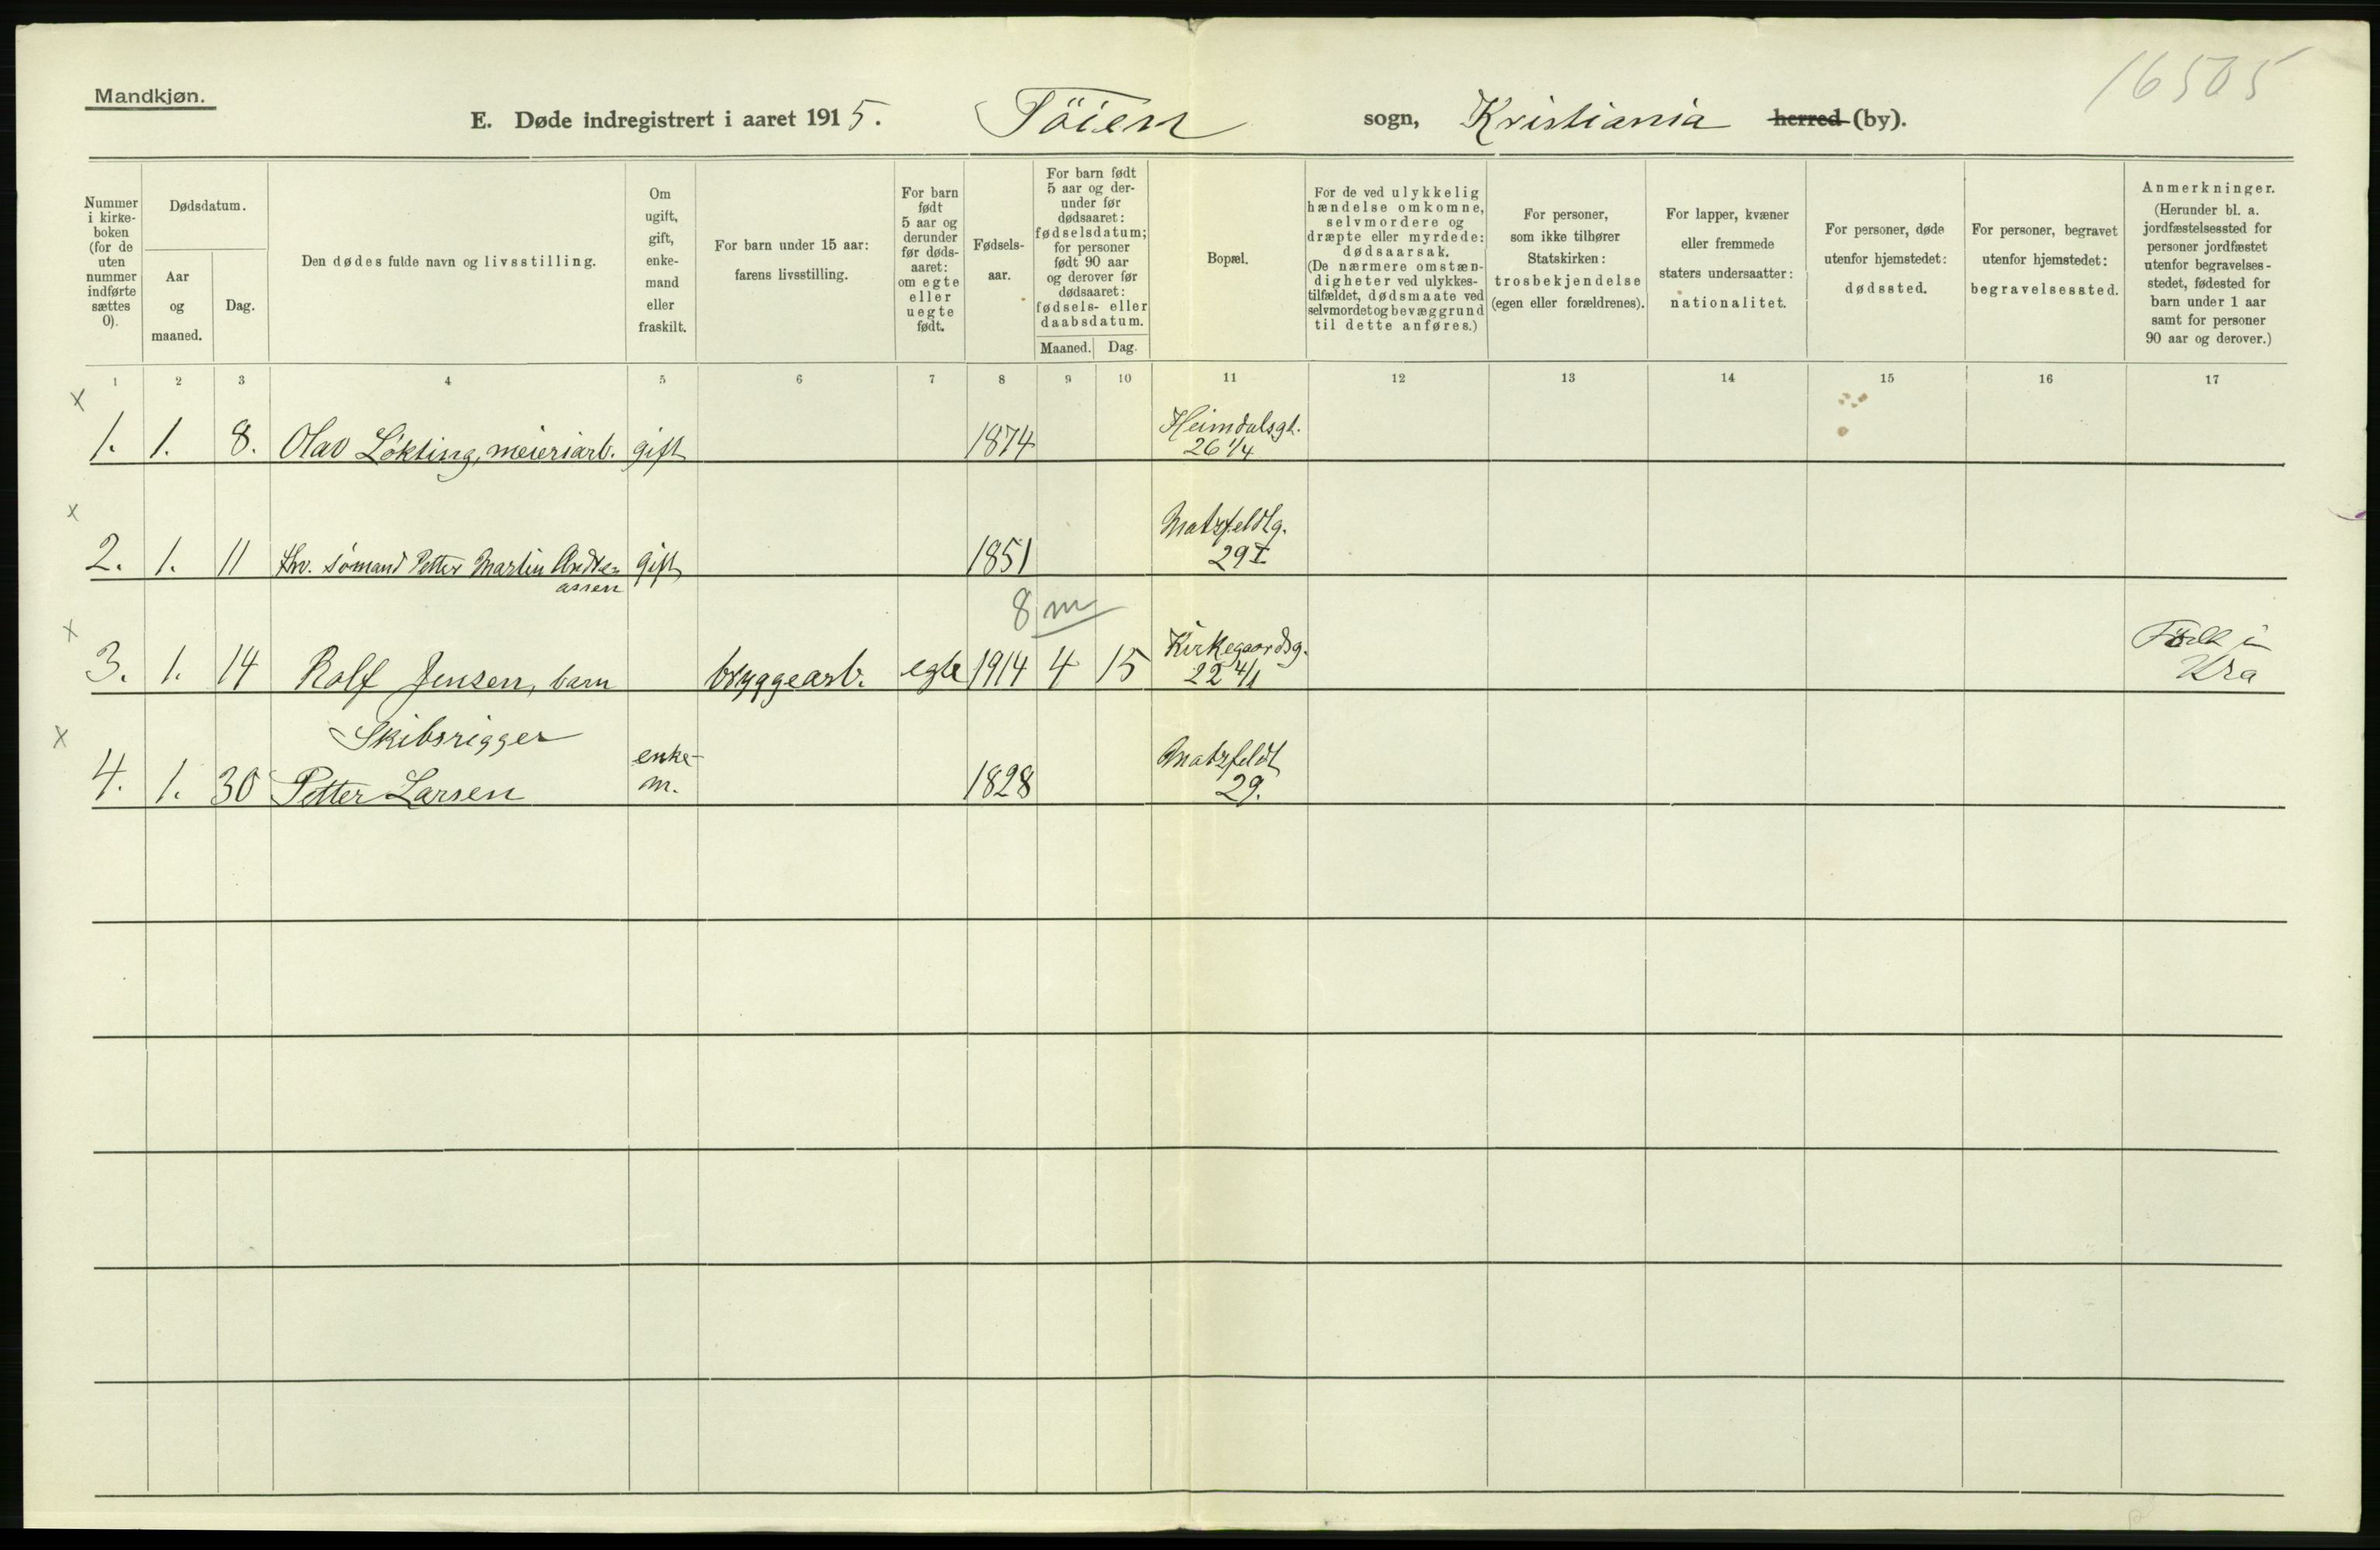 Mandkjøn.
16505
E. Døde indregistrert i aaret 1915. Töien sogn, Kristiania herred (by).
Nummer
i kirke-
boken
(for de
uten
nummer
indførte
sættes
0).
Dødsdatum.
Aar
og
maaned.
Dag.
Den dødes fulde navn og livsstilling.
Om
ugift,
gift,
enke-
mand
eller
fraskilt.
For barn under 15 aar:
farens livsstilling.
For barn
født
5 aar og
derunder
før døds-
aaret:
om egte
eller
uegte
født.
Fødsels-
aar.
For barn født
5 aar og der-
under før
dødsaaret:
fødselsdatum;
for personer
født 90 aar
og derover før
dødsaaret:
fødsels- eller
daabsdatum.
Maaned. Dag.
Bopæl.
For de ved ulykkelig
hændelse omkomne,
selvmordere og
dræpte eller myrdede:
dødsaarsak.
(De nærmere omstæn-
digheter ved ulykkes-
tilfældet, dødsmaate ved
selvmordet og bevæggrund
til dette anføres.)
For personer,
som ikke tilhører
Statskirken:
trosbekjendelse
(egen eller forældrenes).
For lapper, kvæner
eller fremmede
staters undersaatter:
nationalitet.
For personer, døde
utenfor hjemstedet:
dødssted.
For personer, begravet
utenfor hjemstedet:
begravelsessted.
Anmerkninger.
(Herunder bl. a.
jordfæstelsessted for
personer jordfæstet
utenfor begravelses-
stedet, fødested for
barn under 1 aar
samt for personer
90 aar og derover.)
1 2 3 4 5 6 7 8 9 10 11 12 13 14 15 16 17
x
Heimdalsgt.
1. 1. 8. Olav Løkting, meieriarb. gift 1874 26 1/4
x
Matzfeldtg.
2. 1. 11 fhv. sømand Petter Martin Andre= gift 1851 29 I
assen
8 m
x
Kirkegaardsg. Född i
3. 1. 14 Rolf Jensen, barn bryggearb. egte 1914 4 15 22 4/1 Kra
x
Skibsrigger
enke- Matzfeldt
4. 1. 30 Petter Larsen m. 1828 29.